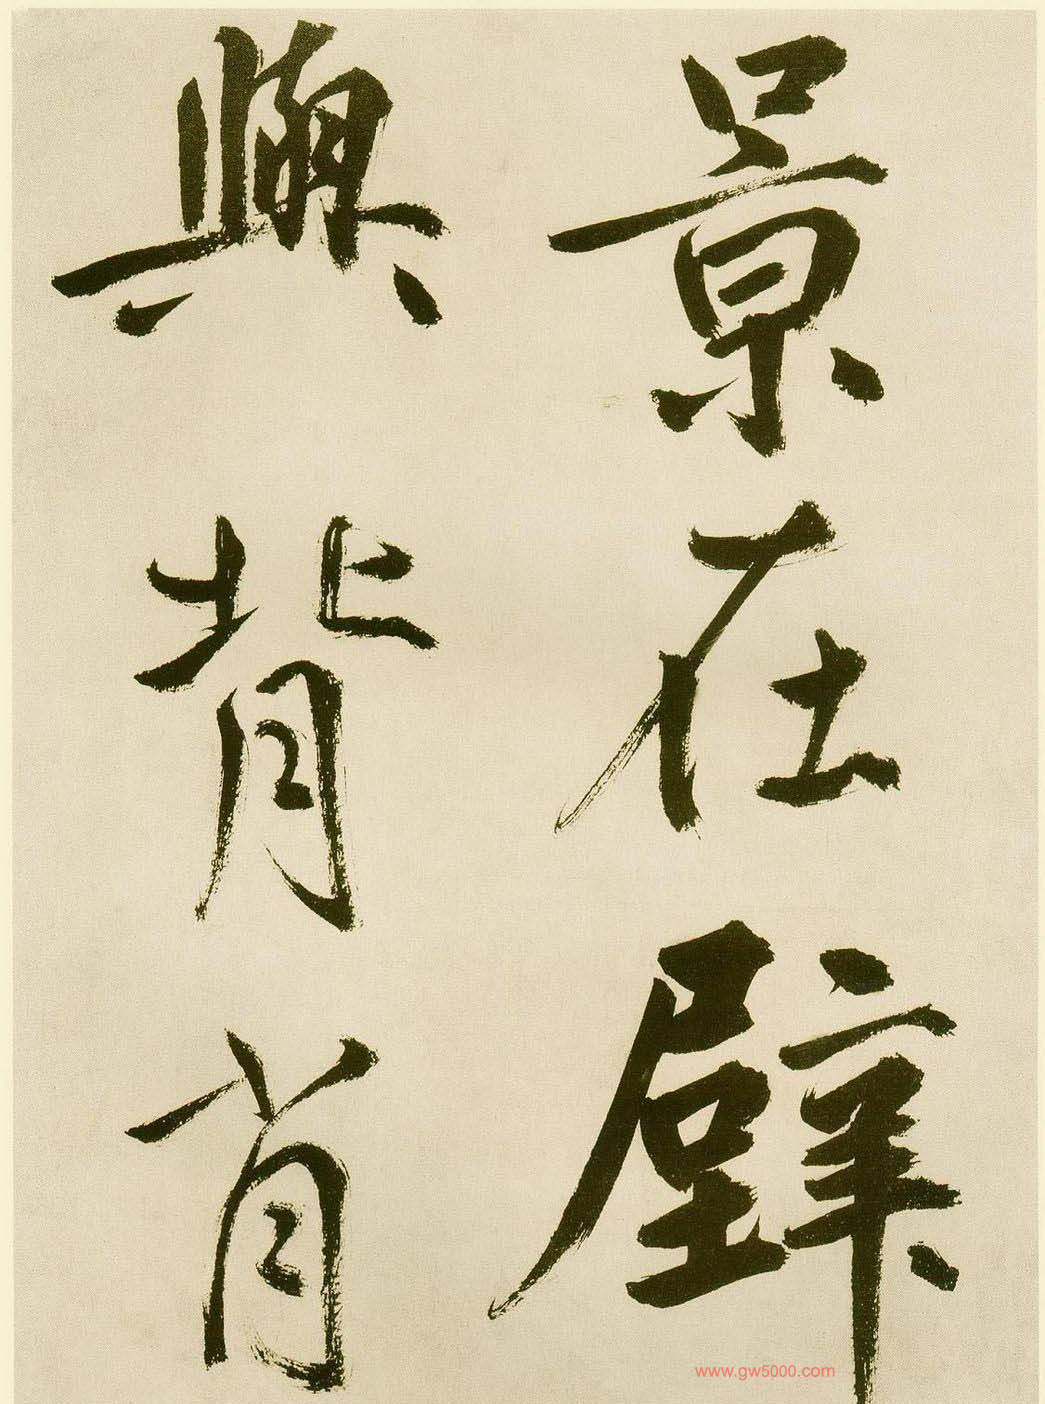 景在壁
與背肖
www.gw5000.com